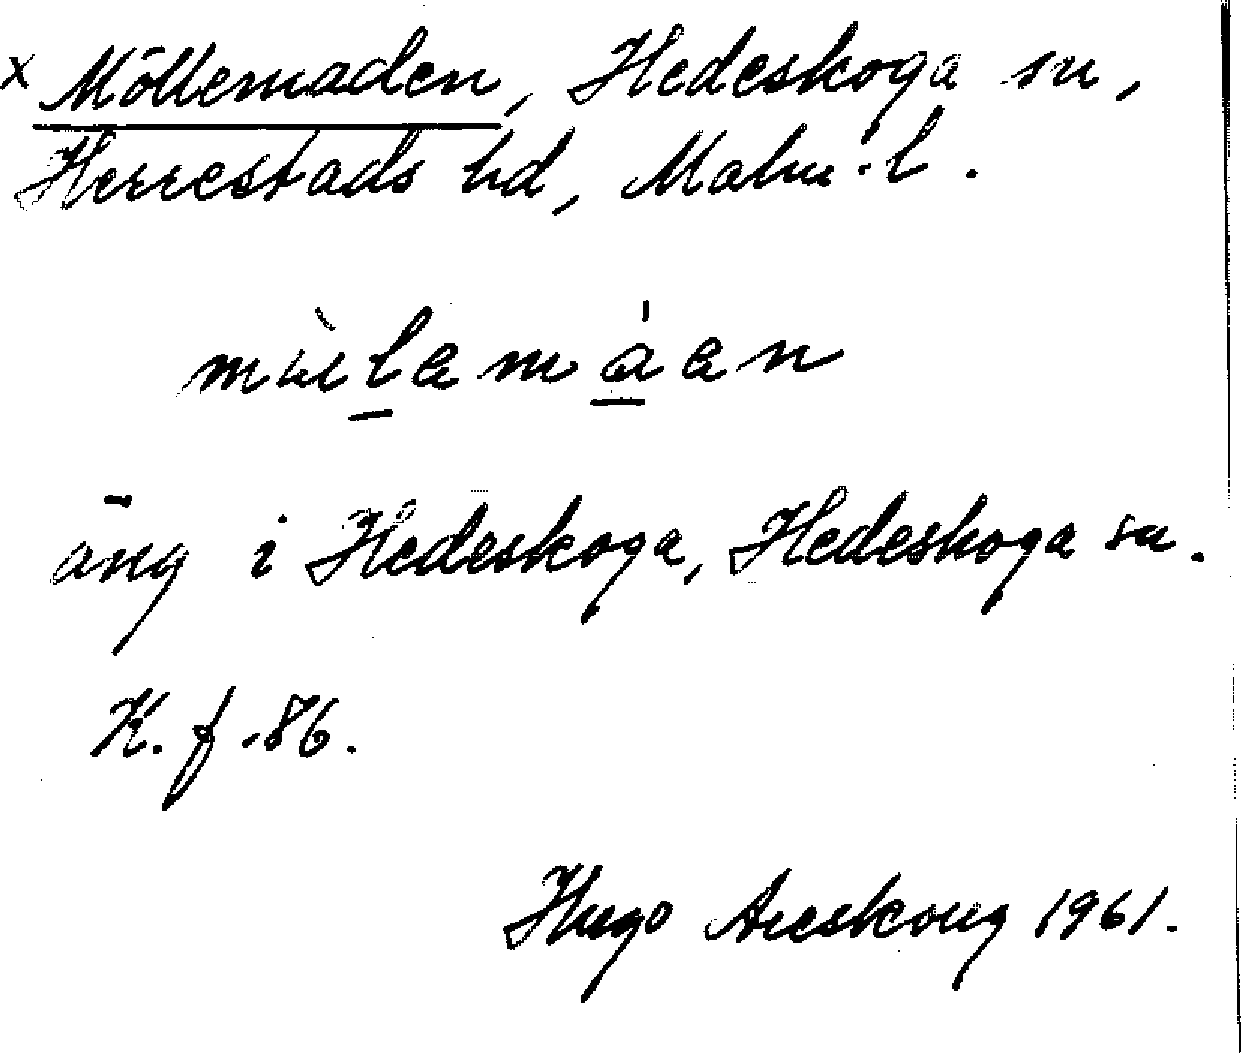 x Möllemaden, Hedeskoga sn,
Herrestads hd, Malm. l.
äng i Hedeskoga, Hedeskoga sn.
K. f. -86.
Hugo Areskoug 1961.